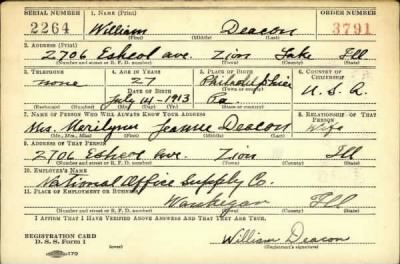 SERIAL NUMBER 1. NAME (Print) ORDER NUMBER
2264 William Deacon 3791
(First) (Middle) (Last)
2. ADDRESS (Print)
2706 Eshcol Ave. Zion Lake Ill
(Number and street or R. F. D. number) (Town) (County) (State)
3. TELEPHONE 4. AGE IN YEARS 5. PLACE OF BIRTH 6. COUNTRY OF CITIZENSHIP
none 27 Philadelphia
DATE OF BIRTH (Town or county)
July 14-1913 Pa. U.S.A.
(Exchange) (Number) (Mo.) (Day) (Yr.) (State or country)
7. NAME OF PERSON WHO WILL ALWAYS KNOW YOUR ADDRESS 8. RELATIONSHIP OF THAT PERSON
Mrs. Jeanne Deacon Wife
(Mr., Mrs., Miss) (First) (Middle) (Last)
9. ADDRESS OF THAT PERSON
2706 Eshcol Ave. Zion Ill
(Number and street or R. F. D. number) (Town) (County) (State)
10. EMPLOYER'S NAME
National Office Supply Co.
11. PLACE OF EMPLOYMENT OR BUSINESS
Waukegan Ill
(Number and street or R. F. D. number) (Town) (County) (State)
I AFFIRM THAT I HAVE VERIFIED ABOVE ANSWERS AND THAT THEY ARE TRUE.
REGISTRATION CARD
D. S. S. Form 1 William Deacon